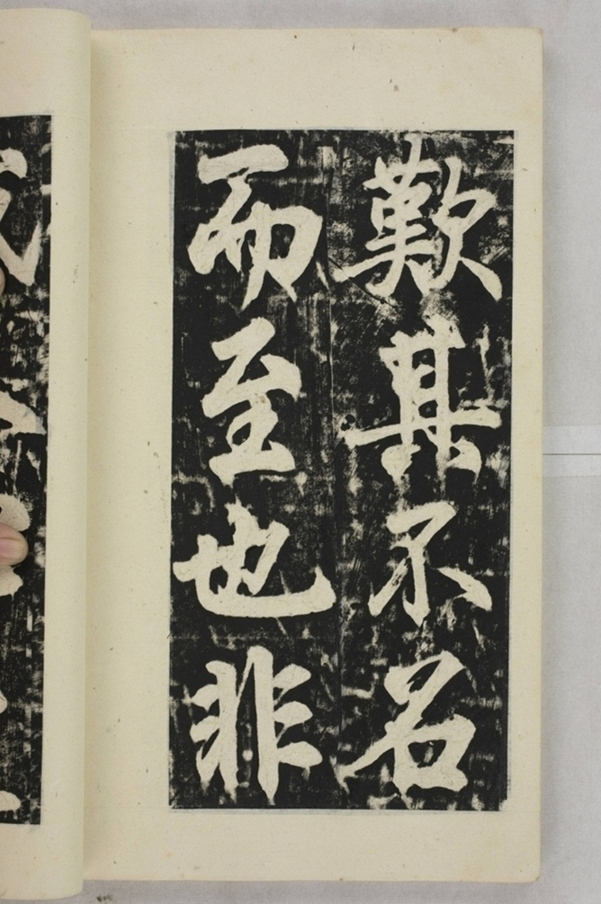 歎其不名
而至也非